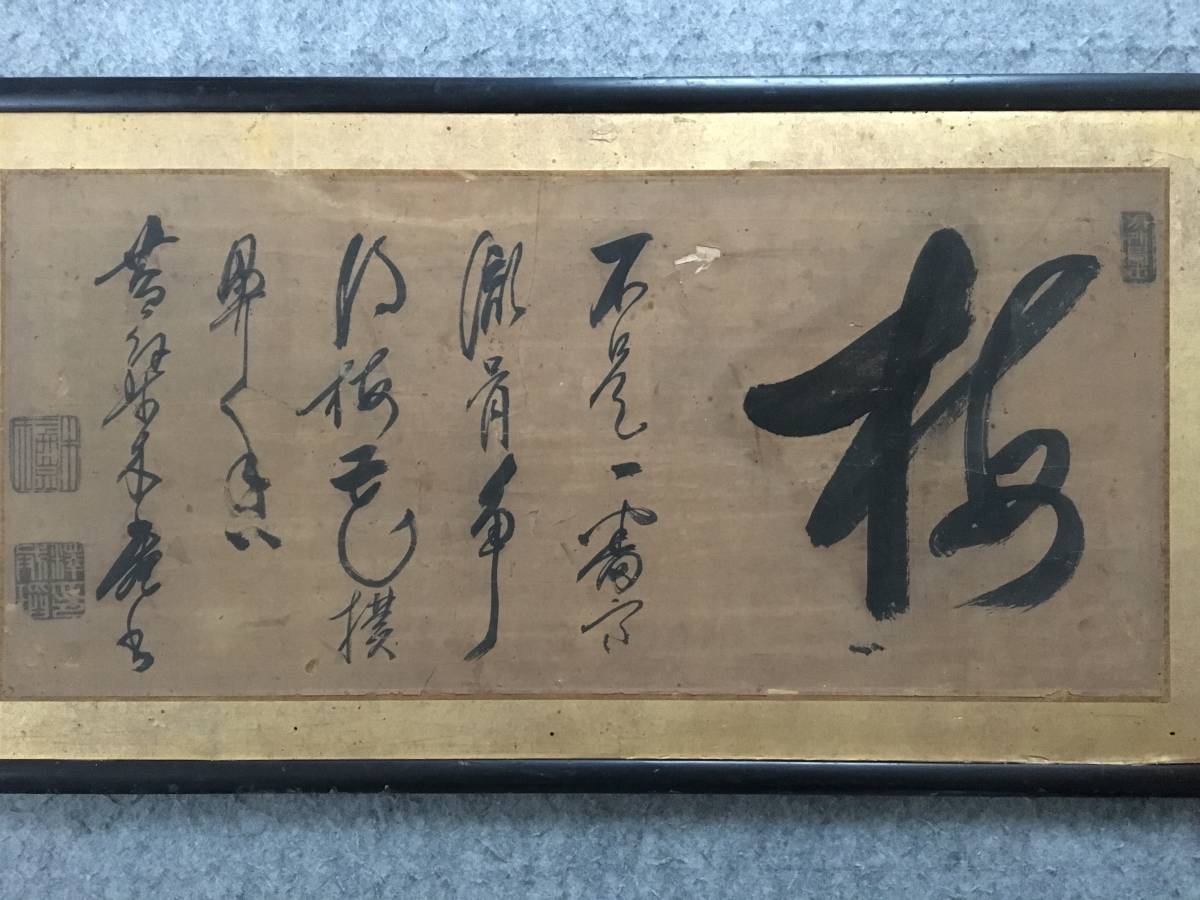 梅
不是一番寒
徹骨争
得梅花撲
鼻々香
黄檗木庵書